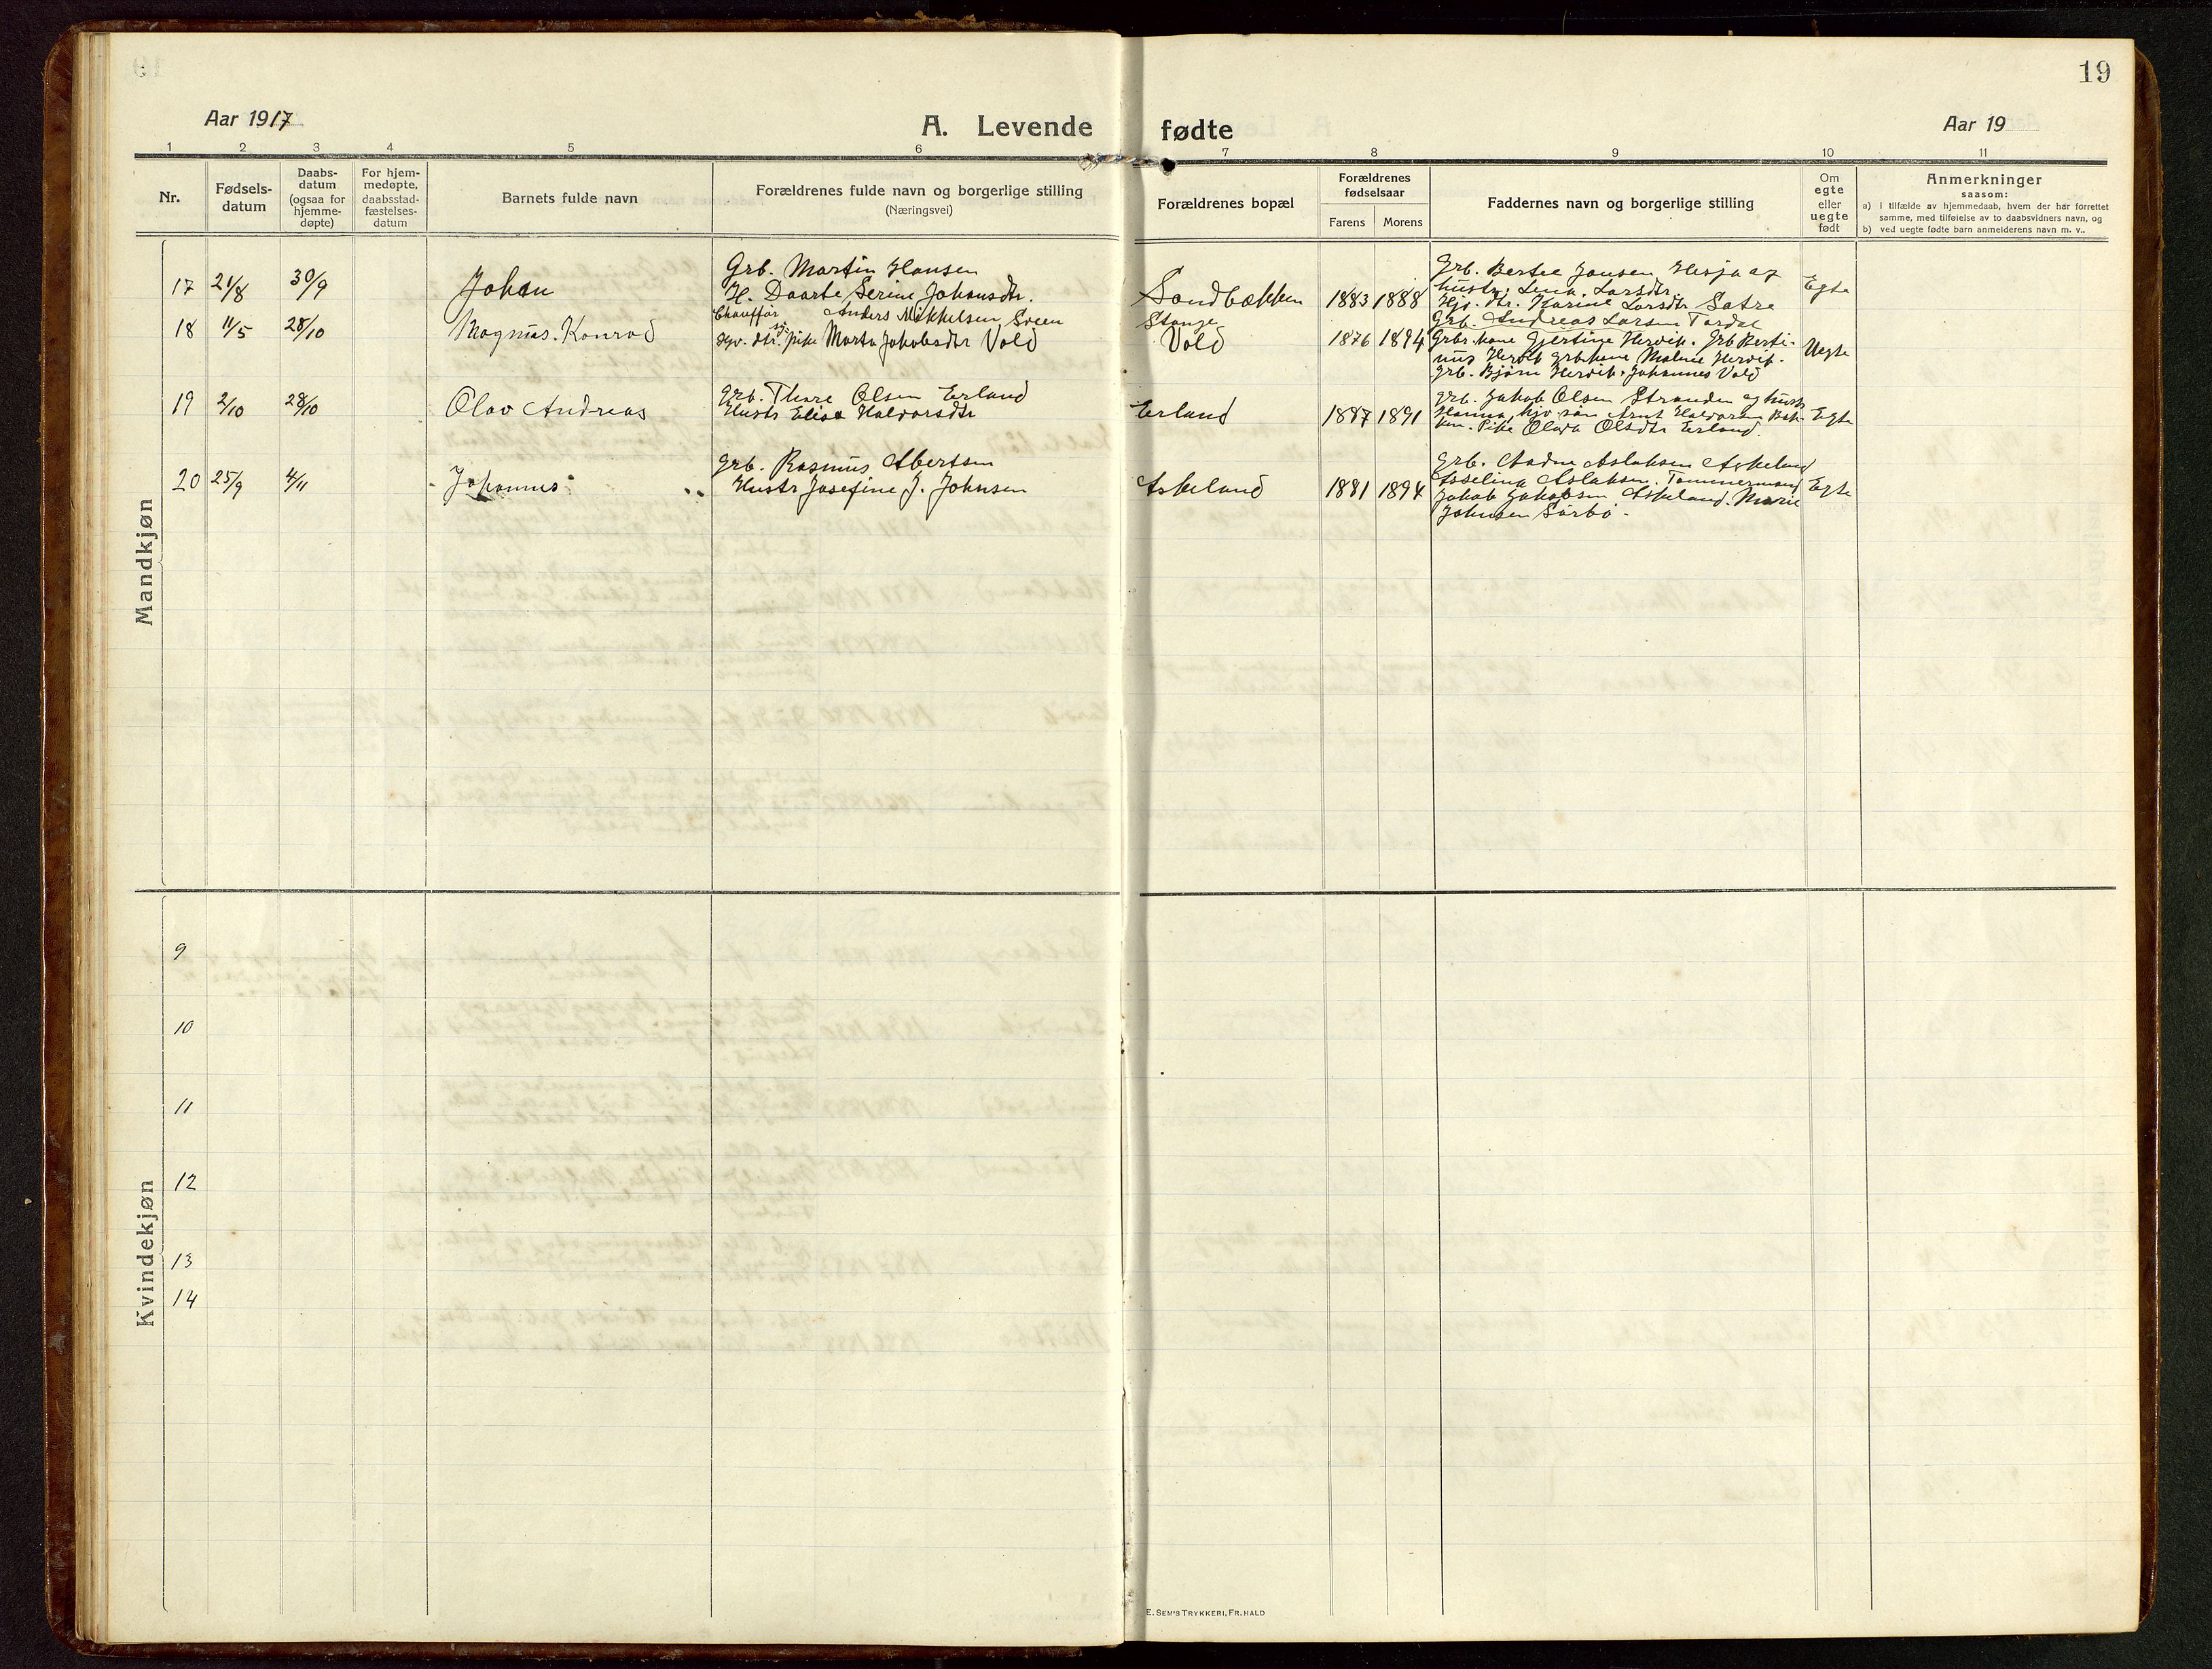 19
Aar 1917
A. Levende fødte
Aar 19
1 2 3 4 5 6 7 8 9 10 11
Nr.
Fødsels-
datum
Daabs-
datum
(ogsaa for
hjemme-
døpte)
For hjem-
medøpte,
daabsstad-
fæstelses-
datum
Barnets fulde navn
Forældrenes fulde navn og borgerlige stilling
(Næringsvei)
Forældrenes bopæl
Forældrenes
fødselsaar
Farens Morens
Faddernes navn og borgerlige stilling
Om
egte
eller
uegte
født
Anmerkninger
saasom:
a) i tilfælde av hjemmedaab, hvem der har forrettet
samme, med tilføielse av to daabsvidners navn, og
b) ved uegte fødte barn anmelderens navn m. v..
Mandkjøn
17 21/8 30/9 Johan
Grb. Martin Hansen
H. Daarte Serine Johansdtr.
Sandbækken 1883 1888
Grb. Bertee Jansen Hesja og
hustr. Lena Larsdtr.
Hjv. dtr. Karine Larsdtr Satre
Grb. Andreas Larsen Tordal
Egte
18 11/5 28/10 Magnus. Konrad
Chauffør Anders Mikkelsen Sveen
Hjv. dtr. pike Marta Jakobsdtr Vold
Stange
Vold 1876 1894
Grbr. kone Gjertine Hervik. Grb Berti-
nus Hervik grb. kone Maline Hervik.
Grb. Bjørn Hervik. Johannes Vold
Uegte
19 2/10 28/10 Olav Andreas
Grb. Thore Olsen Erland
Hustr Elisa Halvorsdtr
Erland 1887 1891
Grb. Jakob Olsen Stranden og hustr
Hanna, hjv. søn Arnt Halvorsen Bak-
ken. Pike Olava Olsdtr Erland.
Egte
20 25/9 4/11 Johannes
Grb. Rasmus Abertsen
Hustr Josefine J. Johnsen
Askeland 1881 1894
Grb. Aadne Aslaksen Askeland
Asselina Aslaksen. Tømmermand
Jakob Jakobsen Askeland. Marie
Johnsen Sørbø.
Egte
Kvindekjøn
9
10
11
12
13
14
E. SEM'S TRYKKERI, FR. HALD